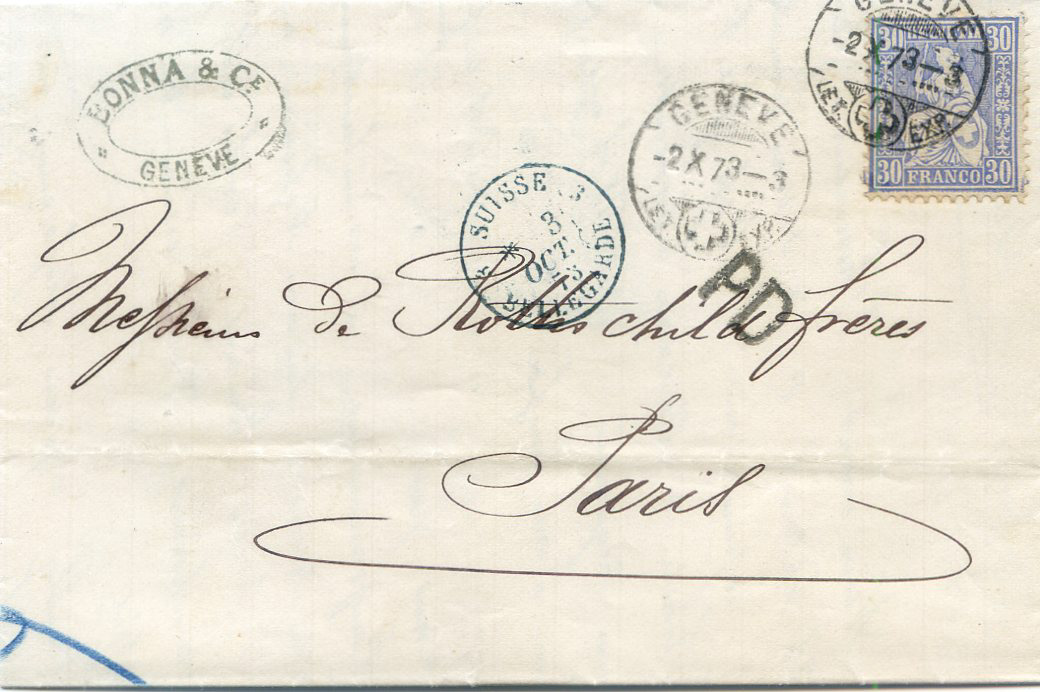 BONNA & CE.
GENÈVE
GENÈVE
-2 X 73-3
LET. EXP.
30 30
30 FRANCO 30
GENÈVE
-2 X 73-3
LET. EXP.
SUISSE 3
3
OCT.
73
BELLEGARDE
PD
Messieurs de Rothschild frères
Paris